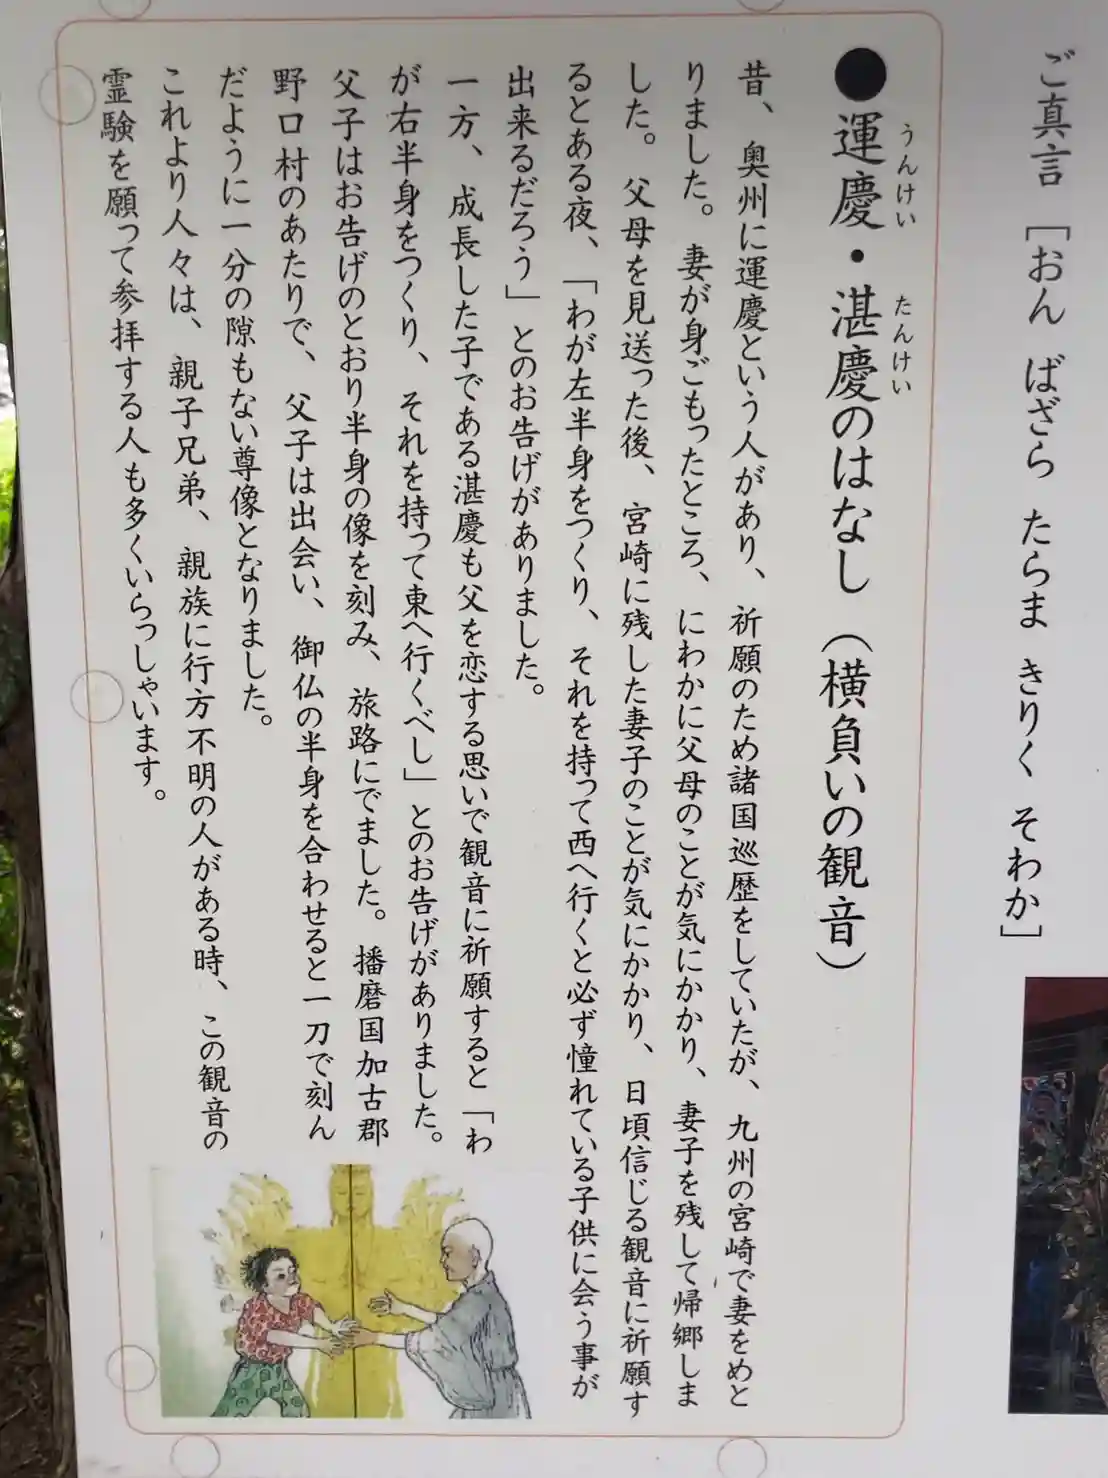 ご真言 [おん ばざら たらま きりく そわか]
●運慶・湛慶のはなし（横負いの観音）
うんけい たんけい
昔、奥州に運慶という人があり、祈願のため諸国巡歴をしていたが、九州の宮崎で妻をめと
りました。妻が身ごもったところ、にわかに父母のことが気にかかり、妻子を残して帰郷しま
した。父母を見送った後、宮崎に残した妻子のことが気にかかり、日頃信じる観音に祈願す
るとある夜、「わが左半身をつくり、それを持って西へ行くと必ず憧れている子供に会う事が
出来るだろう」とのお告げがありました。
一方、成長した子である湛慶も父を恋する思いで観音に祈願すると「わ
が右半身をつくり、それを持って東へ行くべし」とのお告げがありました。
父子はお告げのとおり半身の像を刻み、旅路にでました。播磨国加古郡
野口村のあたりで、父子は出会い、御仏の半身を合わせると一刀で刻ん
だように一分の隙もない尊像となりました。
これより人々は、親子兄弟、親族に行方不明の人がある時、この観音の
霊験を願って参拝する人も多くいらっしゃいます。